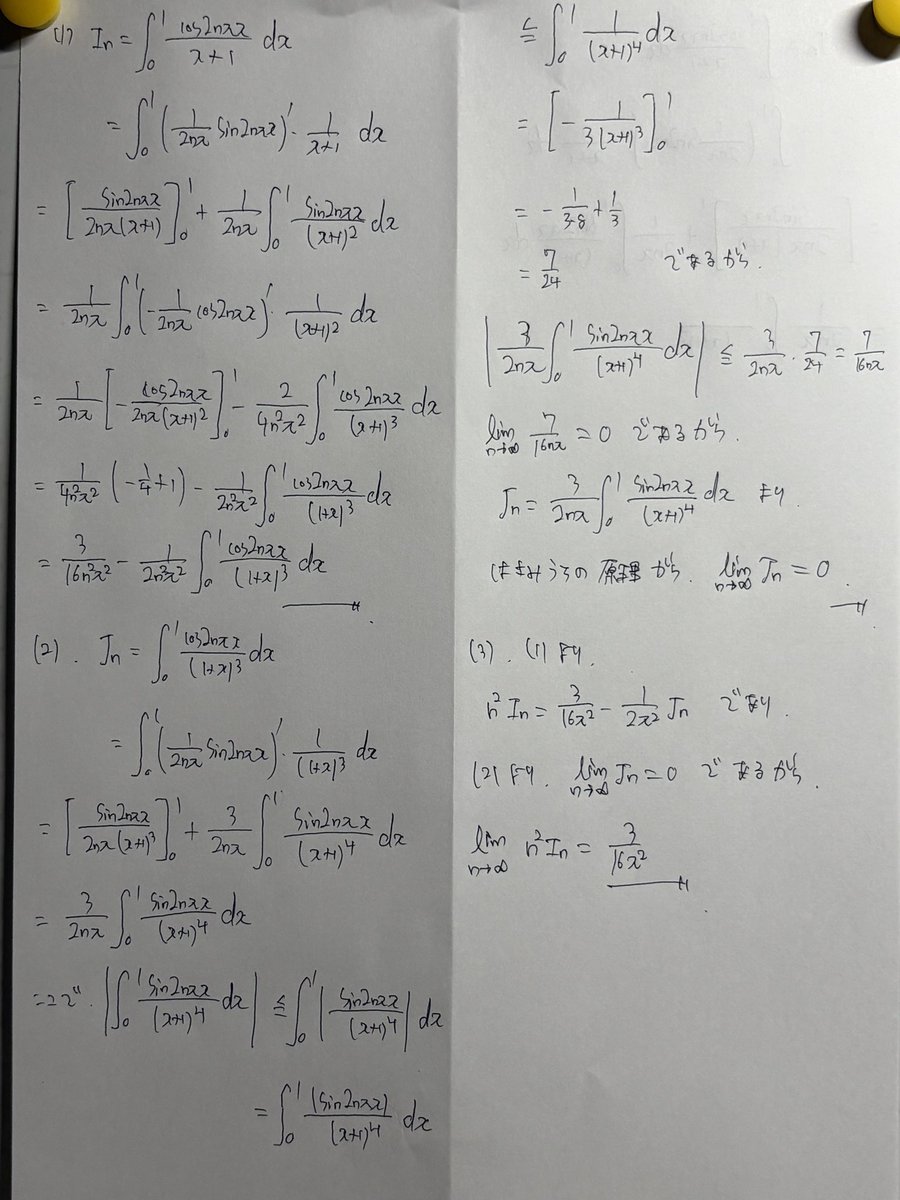 (1) In = ∫₀¹ cos2nπx/(x+1) dx
= ∫₀¹ (1/(2nπ) sin2nπx)′・1/(x+1) dx
= [sin2nπx/(2nπ(x+1))]₀¹ + 1/(2nπ) ∫₀¹ sin2nπx/(x+1)² dx
= 1/(2nπ) ∫₀¹ (-1/(2nπ) cos2nπx)′・1/(x+1)² dx
= 1/(2nπ) [-cos2nπx/(2nπ(x+1)²)]₀¹ - 2/(4n²π²) ∫₀¹ cos2nπx/(x+1)³ dx
= 1/(4n²π²) (-1/4+1) - 1/(2n²π²) ∫₀¹ cos2nπx/(1+x)³ dx
= 3/(16n²π²) - 1/(2n²π²) ∫₀¹ cos2nπx/(1+x)³ dx
(2). Jn = ∫₀¹ cos2nπx/(1+x)³ dx
= ∫₀¹ (1/(2nπ) sin2nπx)′・1/(1+x)³ dx
= [sin2nπx/(2nπ(x+1)³)]₀¹ + 3/(2nπ) ∫₀¹ sin2nπx/(x+1)⁴ dx
= 3/(2nπ) ∫₀¹ sin2nπx/(x+1)⁴ dx
ここで. |∫₀¹ sin2nπx/(x+1)⁴ dx| ≦ ∫₀¹ |sin2nπx/(x+1)⁴| dx
= ∫₀¹ |sin2nπx|/(x+1)⁴ dx
≦ ∫₀¹ 1/(x+1)⁴ dx
= [-1/(3(x+1)³)]₀¹
= -1/(3・8) + 1/3
= 7/24 であるから.
|3/(2nπ) ∫₀¹ sin2nπx/(x+1)⁴ dx| ≦ 3/(2nπ)・7/24 = 7/(16nπ)
lim n→∞ 7/(16nπ) = 0 であるから.
Jn = 3/(2nπ) ∫₀¹ sin2nπx/(x+1)⁴ dx より
はさみうちの原理から. lim n→∞ Jn = 0.
(3). (1)より.
n²In = 3/(16π²) - 1/(2π²) Jn であり.
(2)より. lim n→∞ Jn = 0 であるから.
lim n→∞ n²In = 3/(16π²)